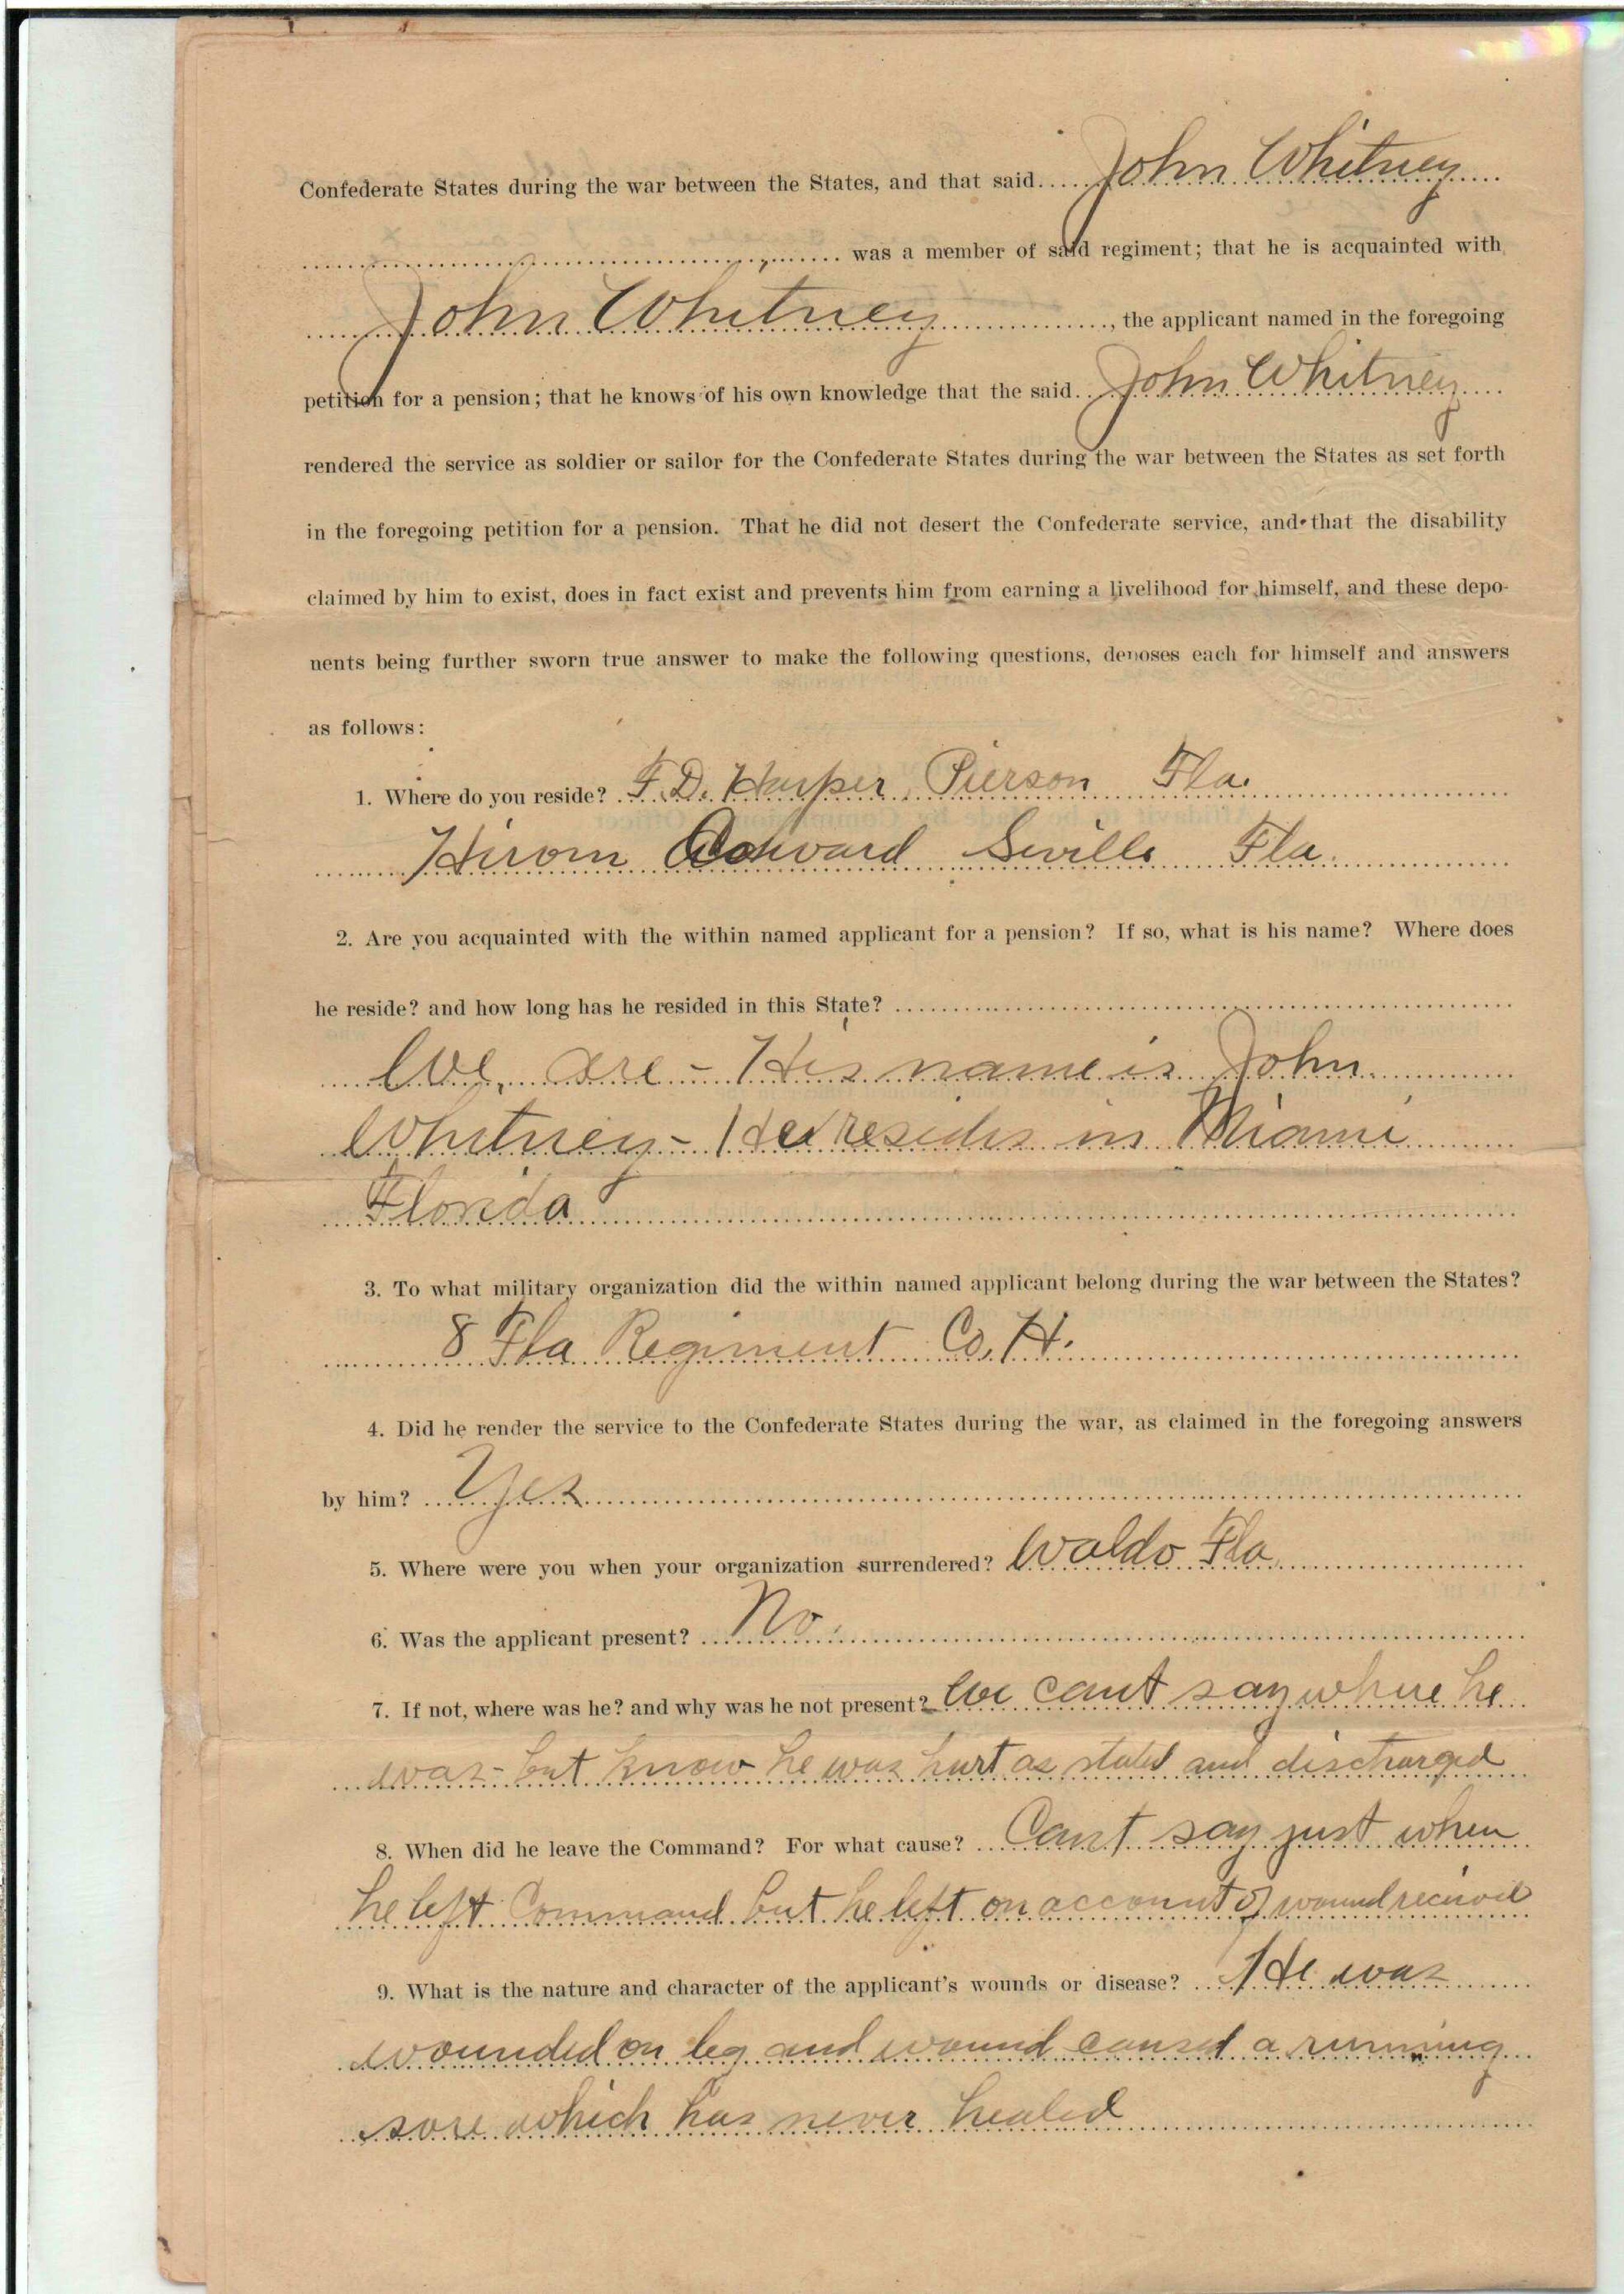 Confederate States during the war between the States, and that said John Whitney
was a member of said regiment; that he is acquainted with
John Whitney, the applicant named in the foregoing
petition for a pension; that he knows of his own knowledge that the said John Whitney
rendered the service as soldier or sailor for the Confederate States during the war between the States as set forth
in the foregoing petition for a pension. That he did not desert the Confederate service, and that the disability
claimed by him to exist, does in fact exist and prevents him from earning a livelihood for himself, and these depo-
nents being further sworn true answer to make the following questions, deposes each for himself and answers
as follows:
1. Where do you reside? F. D. Harper Pierson Fla.
Hirom Seville Fla.
2. Are you acquainted with the within named applicant for a pension? If so, what is his name? Where does
he reside? and how long has he resided in this State?
We are - His name is John
Whitney - He resides in Miami
Florida
3. To what military organization did the within named applicant belong during the war between the States?
8 Fla Regiment Co. H.
4. Did he render the service to the Confederate States during the war, as claimed in the foregoing answers
by him? Yes
5. Where were you when your organization surrendered? Waldo Fla
6. Was the applicant present? No
7. If not, where was he? and why was he not present? We cant say where he
was - but know he was hurt as stated and discharged
8. When did he leave the Command? For what cause? Cant say just when
he left Command but he left on account of wound received
9. What is the nature and character of the applicant's wounds or disease? He was
wounded on leg and wound caused a running
sore which has never healed